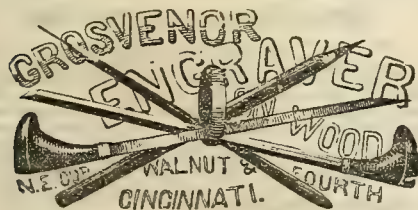 GROSVENOR
ENGRAVER
ON WOOD
N.E. COR WALNUT & FOURTH
CINCINNATI.